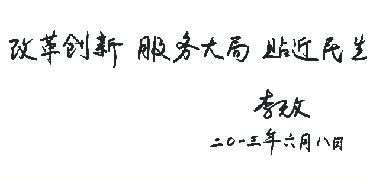 改革创新 服务大局 贴近民生
二〇一三年六月八日